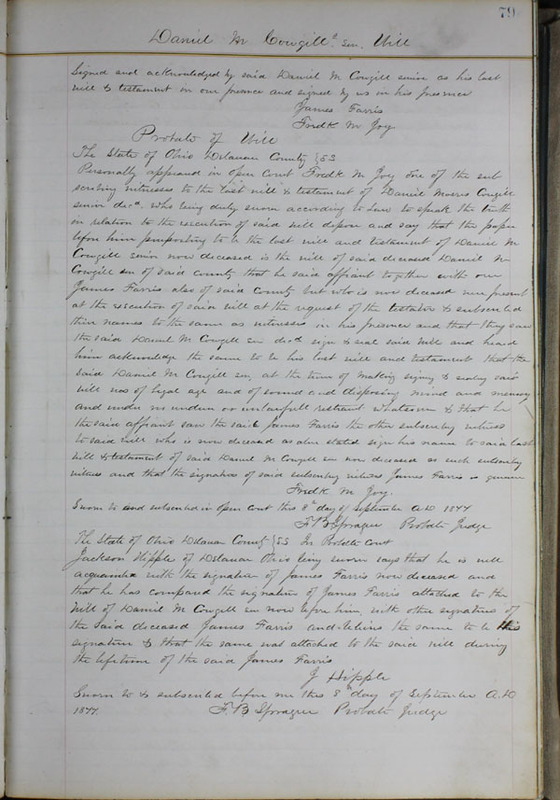 79
Daniel M Cowgill Sen. Will
Signed and acknowledged by said Daniel M Cowgill senior as his last
will & testament in our presence and signed by us in his presence
James Farris
Fredk M Joy
Probate of Will
The State of Ohio Delaware County } SS
Personally appeared in open Court Fredk M Joy one of the sub
scribing witnesses to the last will & testament of Daniel Morris Cowgill
senior decd. who being duly sworn according to Law to speak the truth
in relation to the execution of said will depose and say that the paper
before him purporting to be the last will and testament of Daniel M
Cowgill senior now deceased is the will of said deceased Daniel M
Cowgill sen of said County that he said affiant together with one
James Farris also of said County but who is now deceased were present
at the execution of said will at the request of the testator & subscribed
their names to the same as witnesses in his presence and that they saw
the said Daniel M Cowgill sen decd sign & seal said will and heard
him acknowledge the same to be his last will and testament that the
said Daniel M Cowgill sen, at the time of making signing & sealing said
will was of legal age and of sound and disposing mind and memory
and under no undue or unlawfull restraint whatsoever & that he
the said affiant saw the said James Farris the other subscribing witness
to said will who is now deceased as above stated sign his name to said last
will & testament of said Daniel M Cowgill sen now deceased as such subscribing
witness and that the signature of said subscribing witness James Farris is genuine
Fredk M Joy.
Sworn to and subscribed in open court this 8th day of September A.D 1877
F. B. Sprague Probate Judge
The State of Ohio Delaware County } SS In Probate Court
Jackson Hipple of Delaware Ohio being sworn says that he is well
acquainted with the signature of James Farris now deceased and
that he has compared the signature of James Farris attached to the
Will of Daniel M Cowgill sen now before him, with other signatures of
the said deceased James Farris and believes the same to be his
signature & that the same was attached to the said will during
the lifetime of the said James Farris
J Hipple
Sworn to & subscribed before me this 8th day of September A.D
1877. F. B Sprague Probate Judge